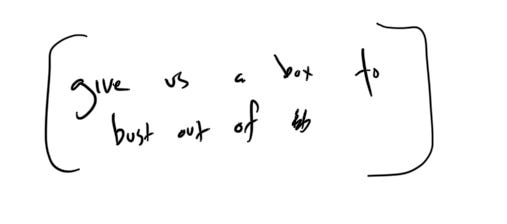 give us a box to
bust out of